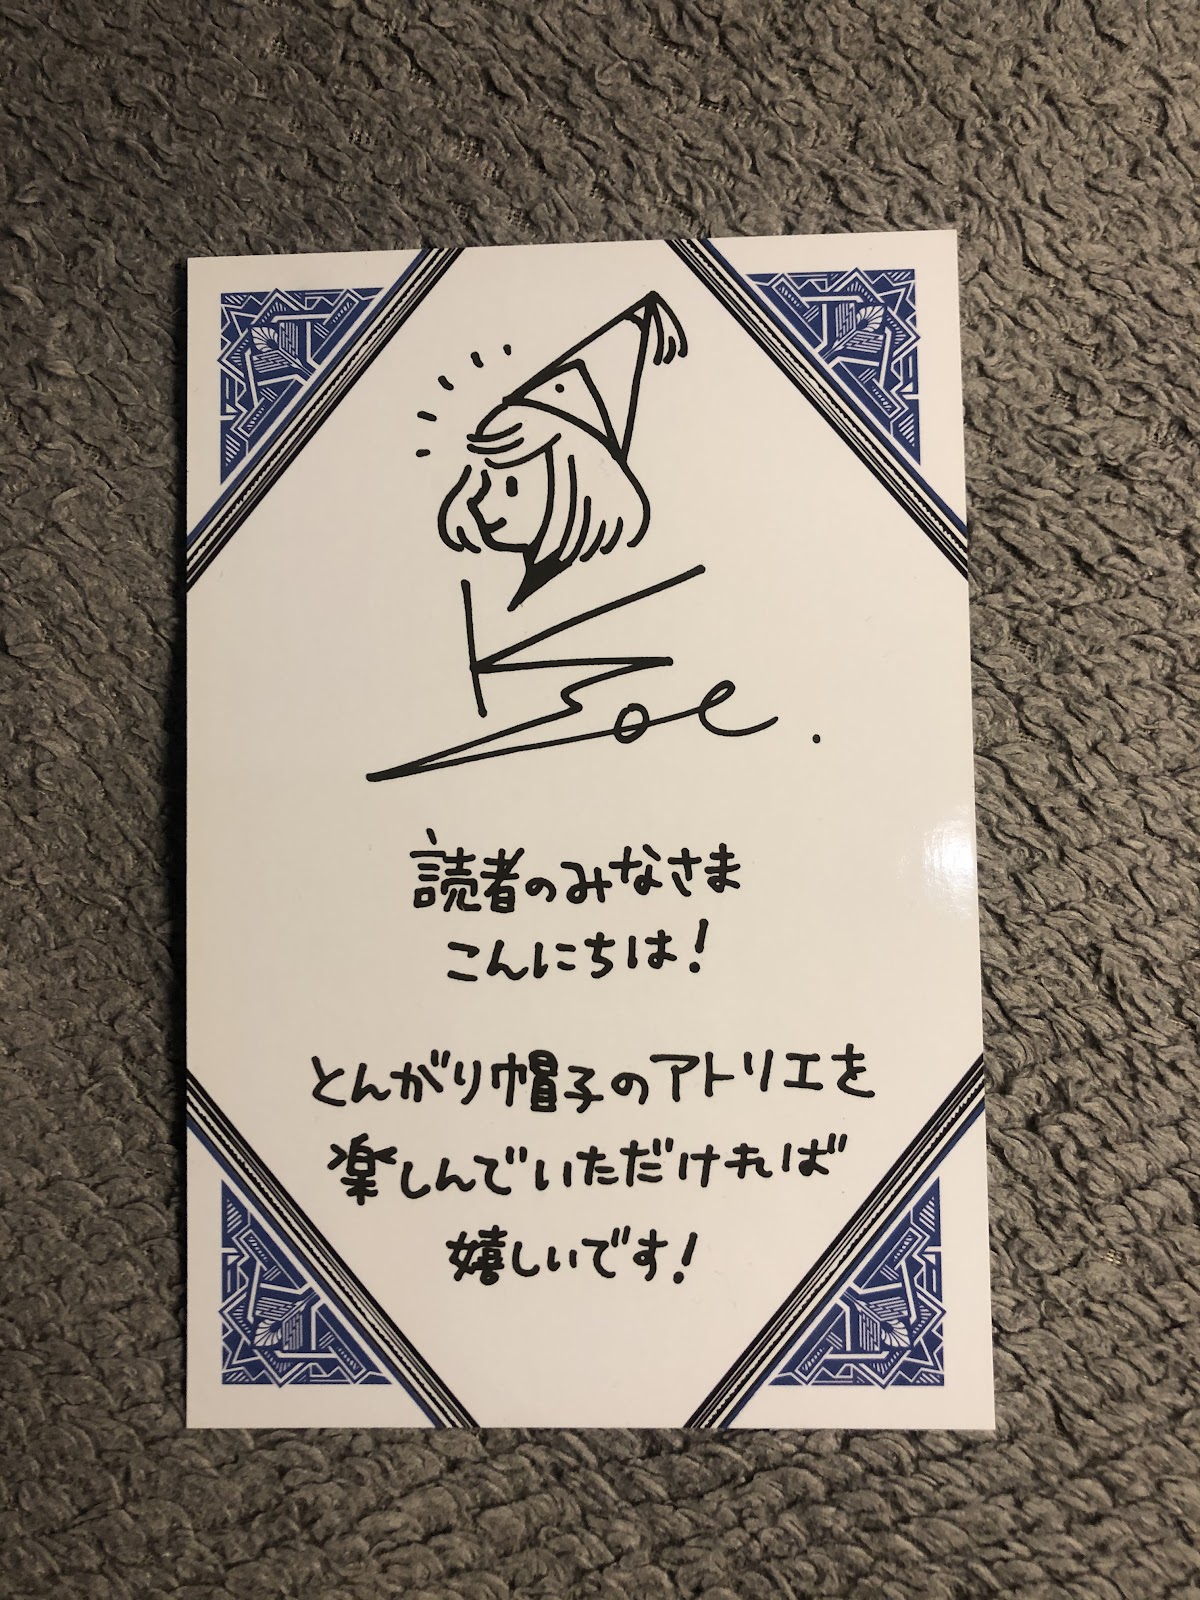 読者のみなさま
こんにちは!
とんがり帽子のアトリエを
楽しんでいただければ
嬉しいです!